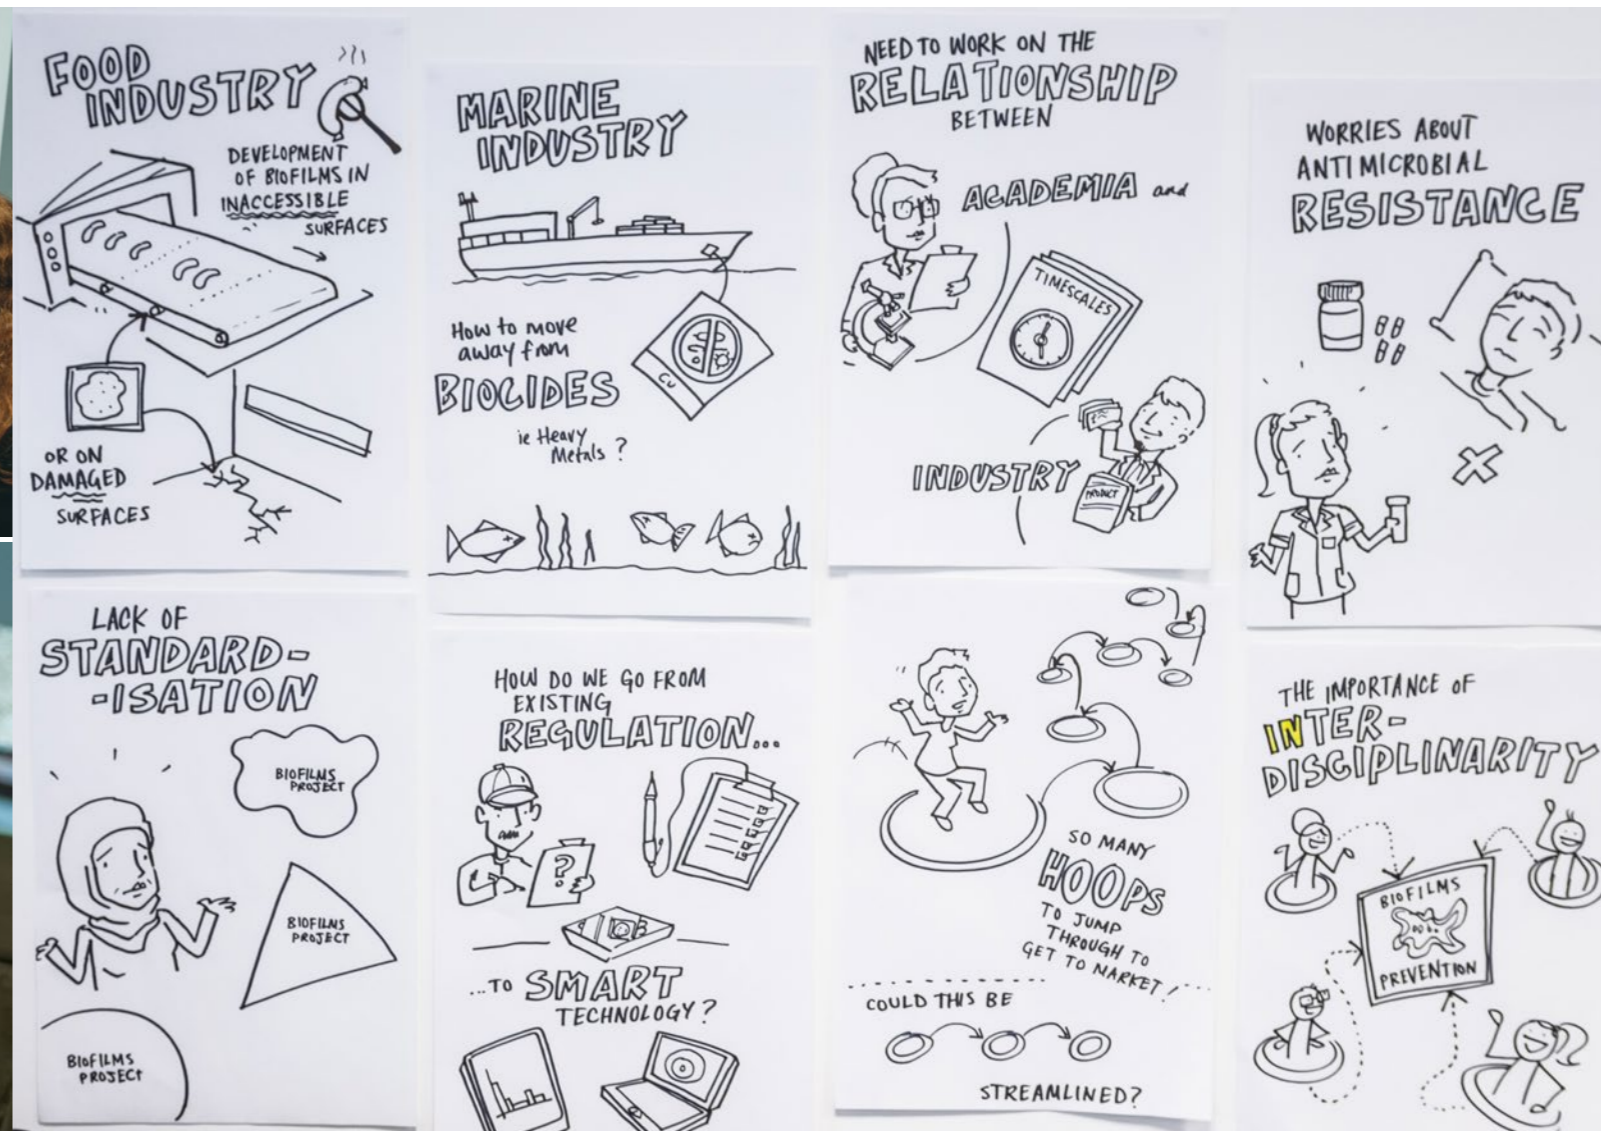 FOOD
INDUSTRY
DEVELOPMENT
OF BIOFILMS IN
INACCESSIBLE
SURFACES
OR ON
DAMAGED
SURFACES
MARINE
INDUSTRY
HOW to move
away from
BIOCIDES
ie Heavy
Metals ?
Cu
NEED TO WORK ON THE
RELATIONSHIP
BETWEEN
ACADEMIA and
TIMESCALES
INDUSTRY
PRODUCT
WORRIES ABOUT
ANTIMICROBIAL
RESISTANCE
LACK OF
STANDARD-
-ISATION
BIOFILMS
PROJECT
BIOFILMS
PROJECT
BIOFILMS
PROJECT
HOW DO WE GO FROM
EXISTING
REGULATION...
?
...TO SMART
TECHNOLOGY?
SO MANY
HOOPS
TO JUMP
THROUGH TO
GET TO MARKET!
COULD THIS BE
STREAMLINED?
THE IMPORTANCE OF
INTER-
DISCIPLINARITY
BIOFILMS
PREVENTION